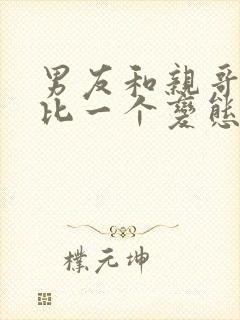 男友和親哥
比一个變態
樸元坤